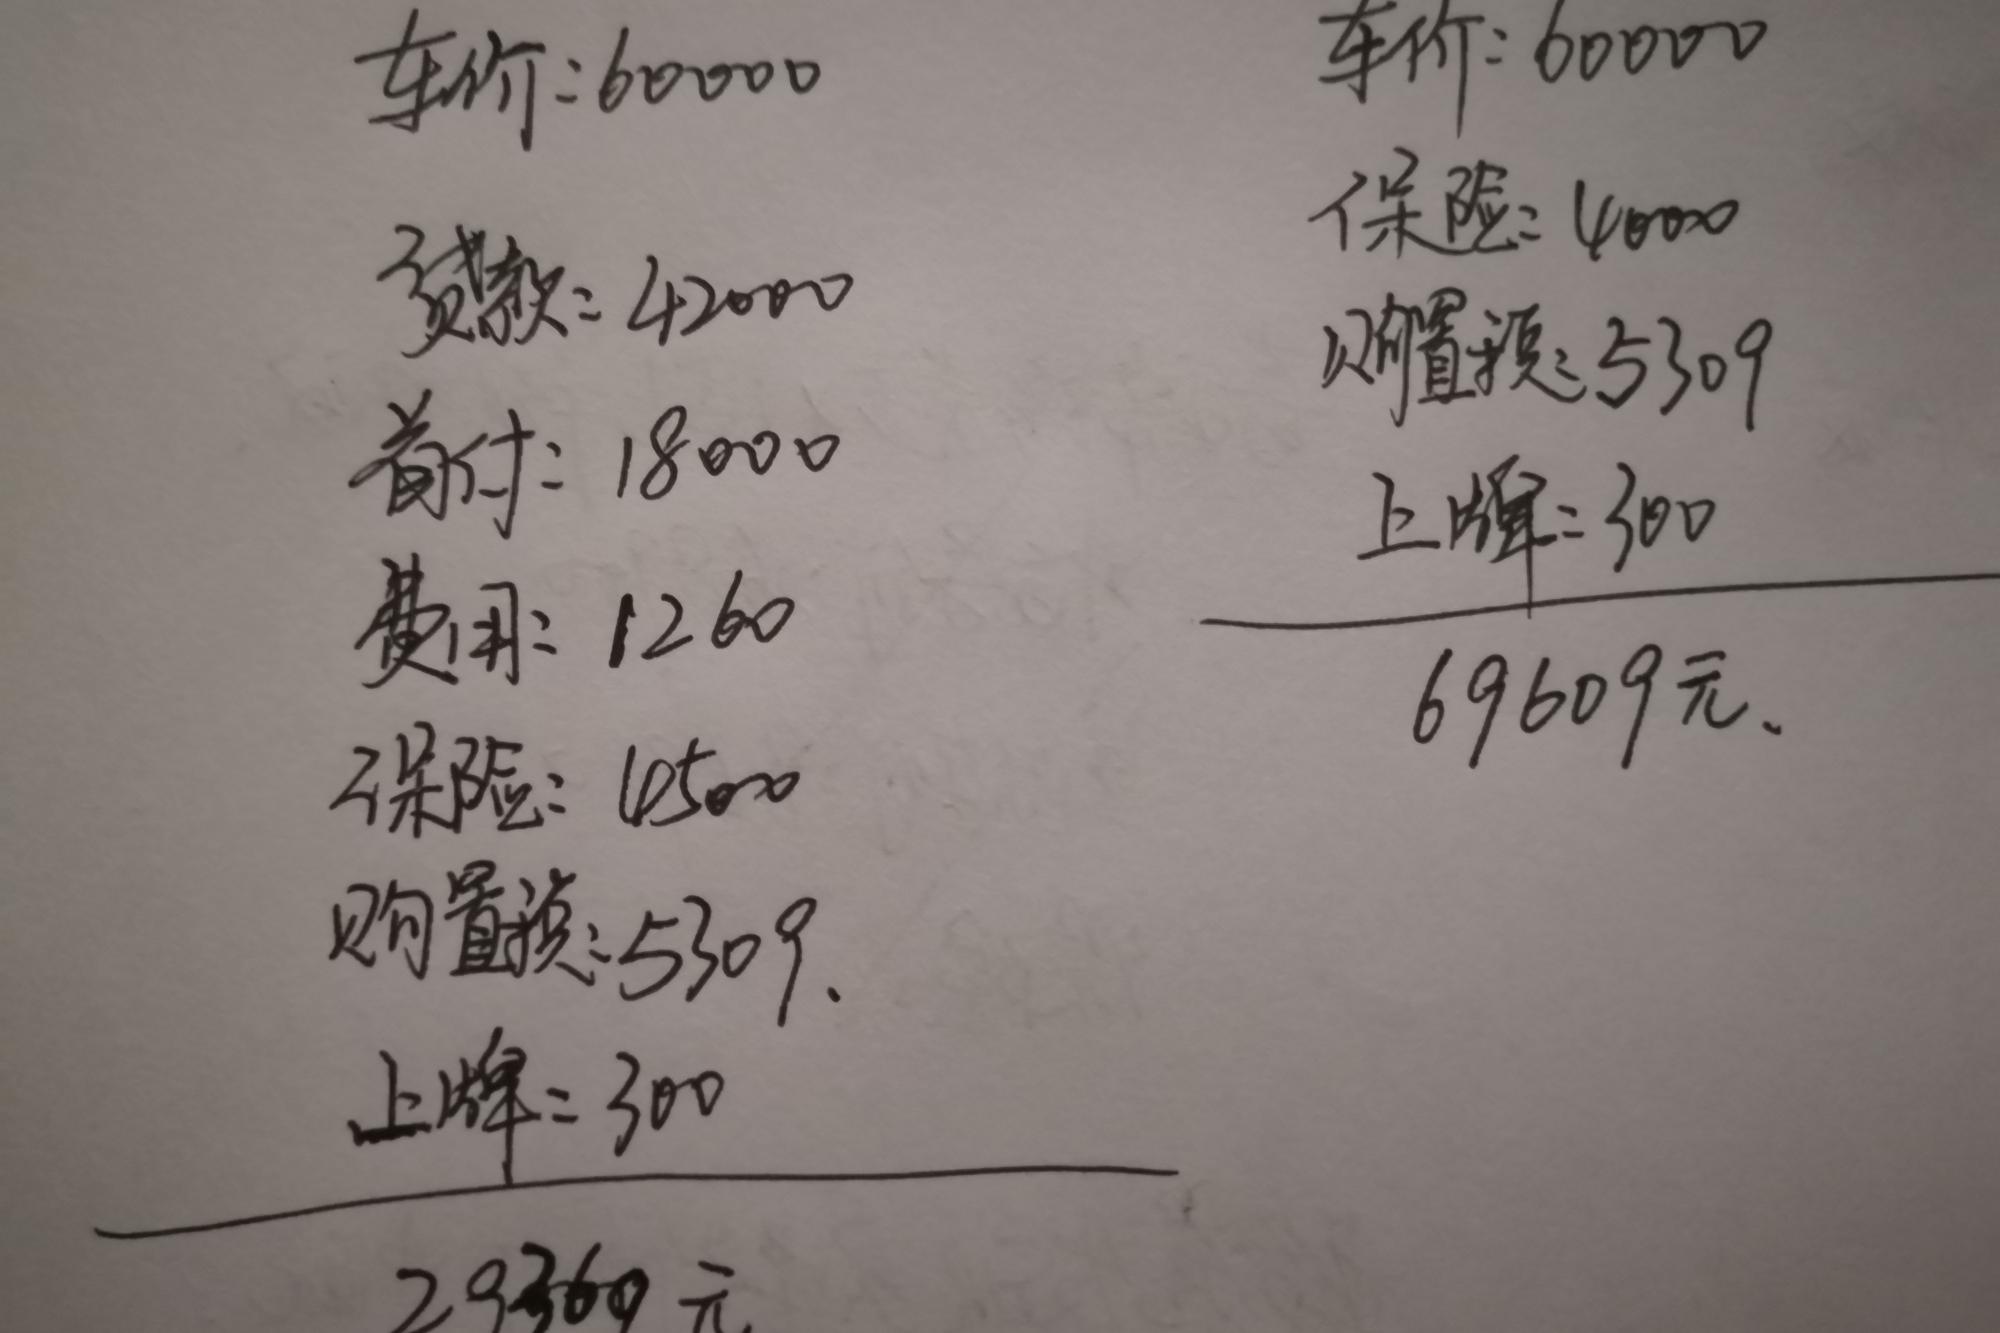 车价:60000
贷款:42000
首付:18000
费用:1260
保险:4500
购置税:5309.
上牌:300
29369元
车价:60000
保险:4000
购置税:5309
上牌:300
69609元、